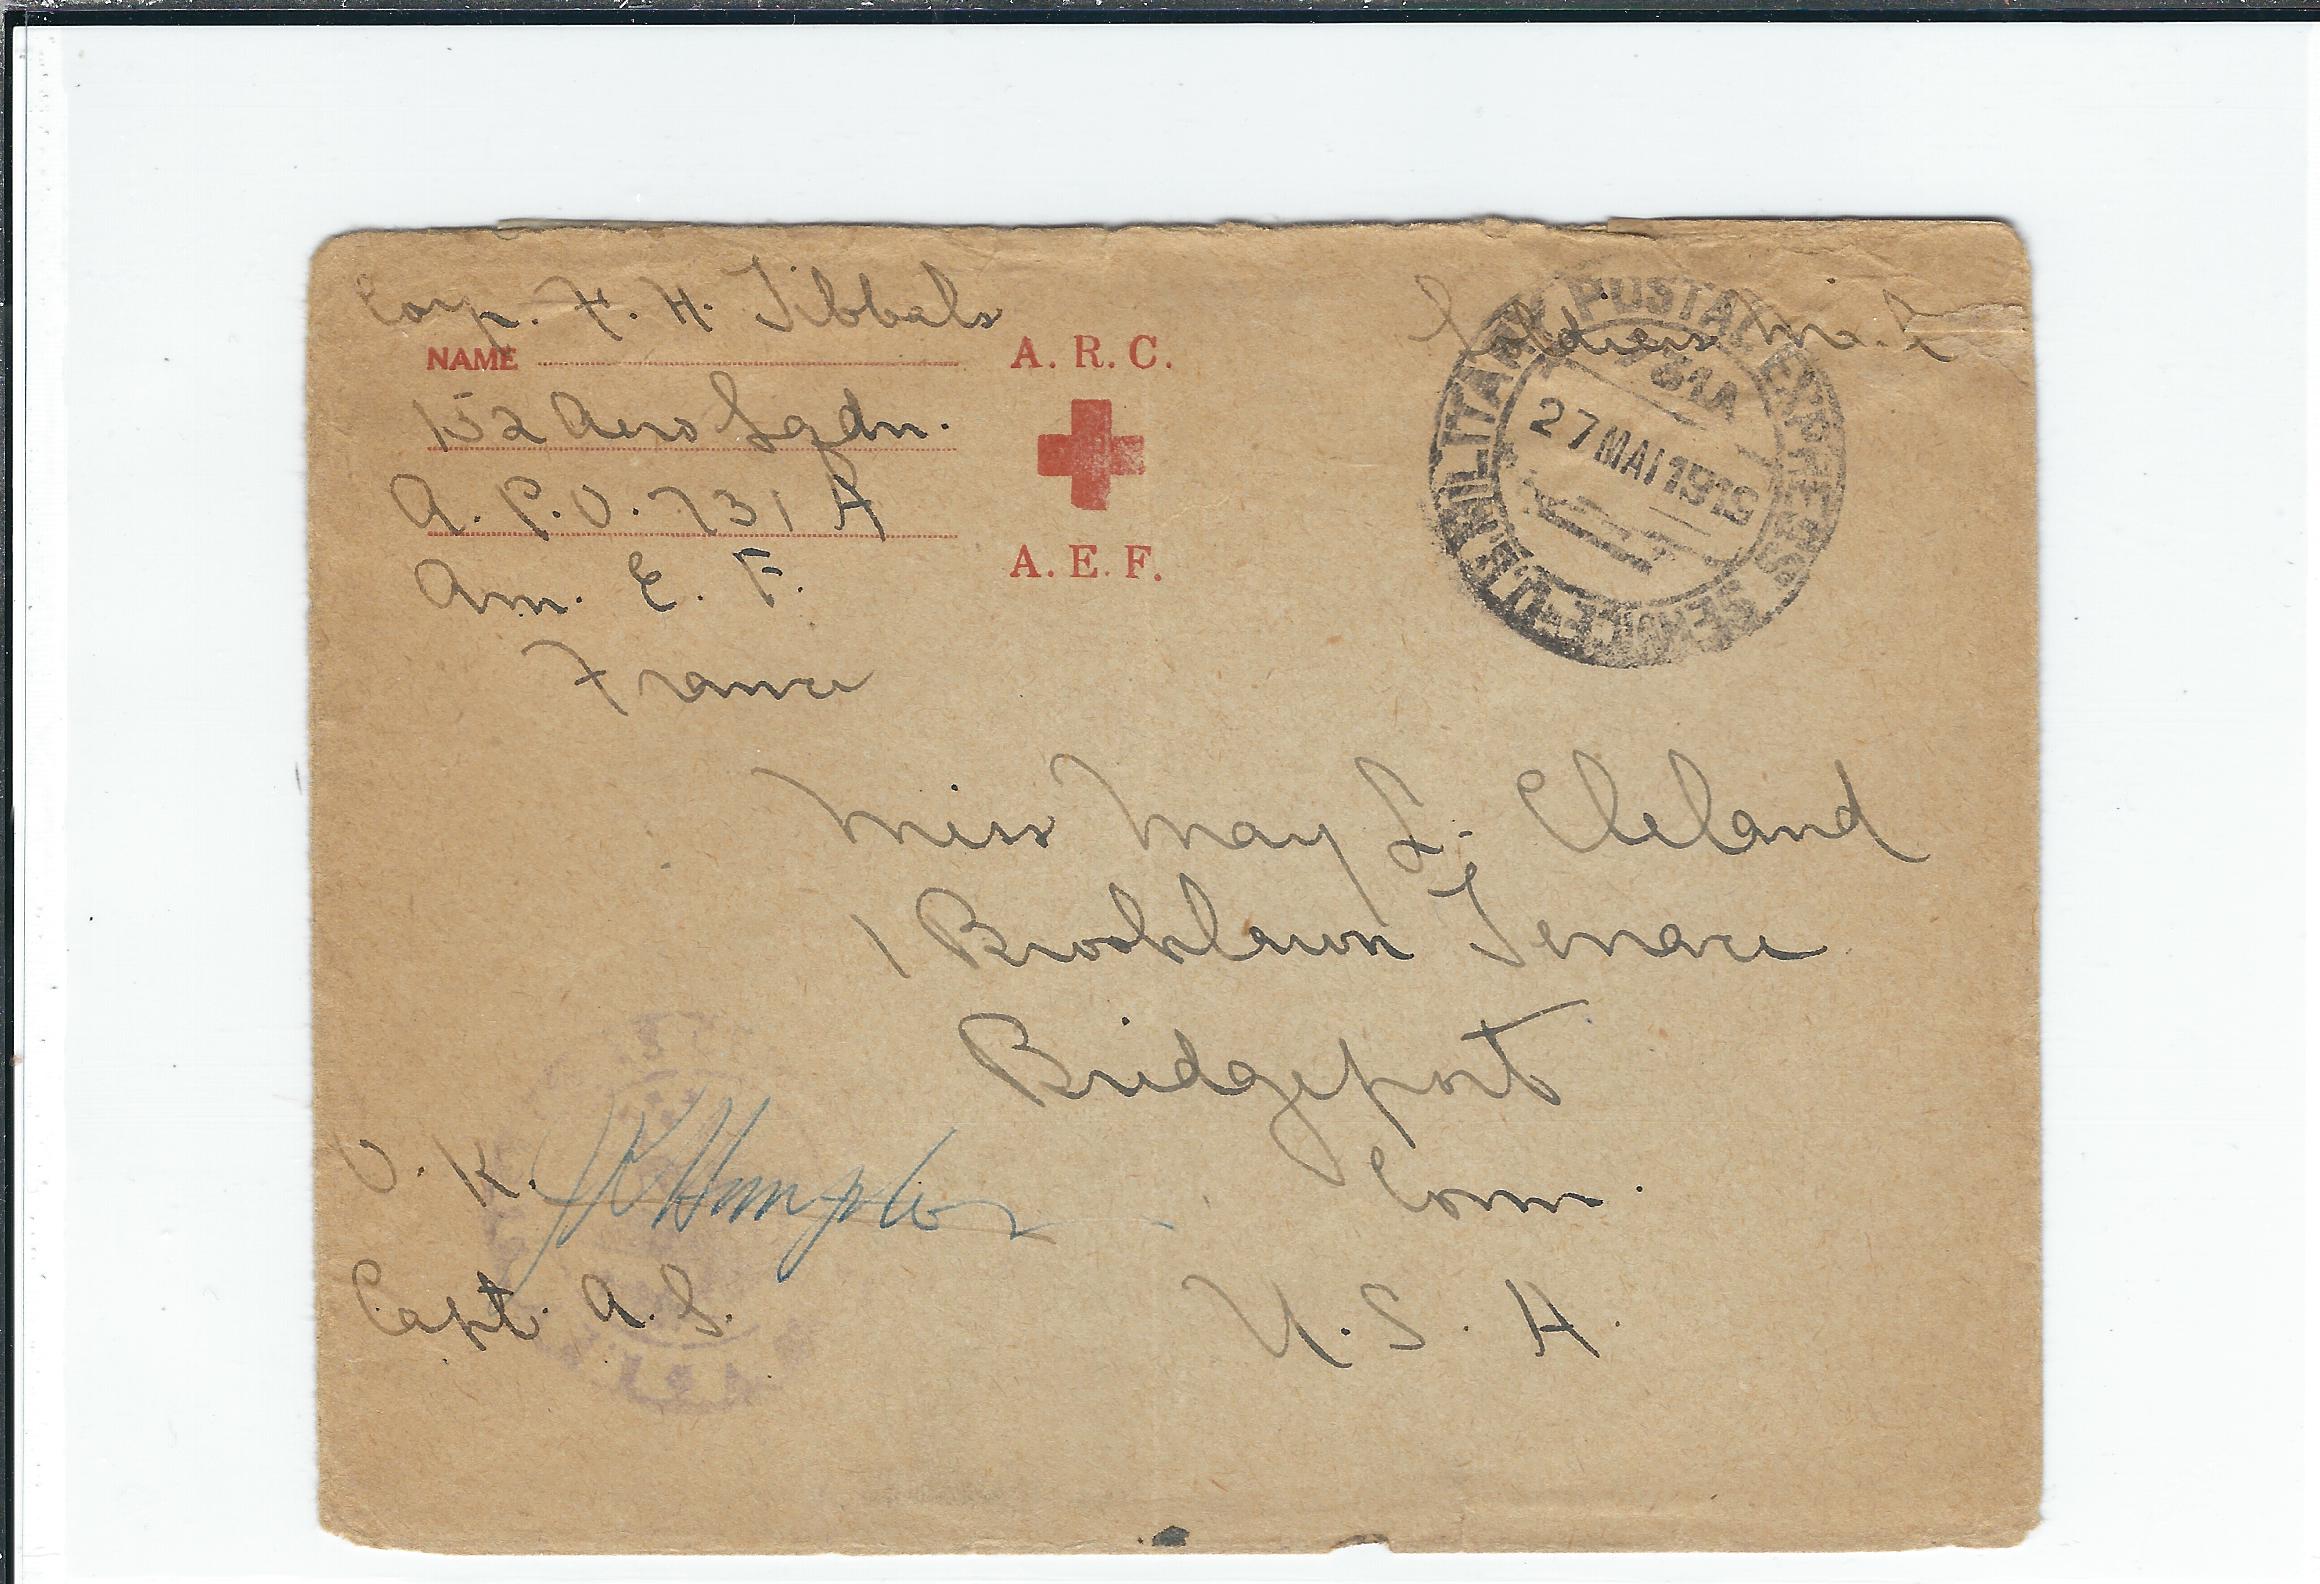 Corp. F. H. Tibbals
NAME
152 Aero Sqdn.
A. P. O. 731 A
Am. E. F.
France
A. R. C.
A. E. F.
Soldiers M.
U.S. MILITARY POSTAL EXPRESS SERVICE
731A
27 MAI 1919
Miss May L. Cleland
1 Brooklawn Terrace
Bridgeport
Conn.
U. S. A.
O. K.
Capt. A. S.